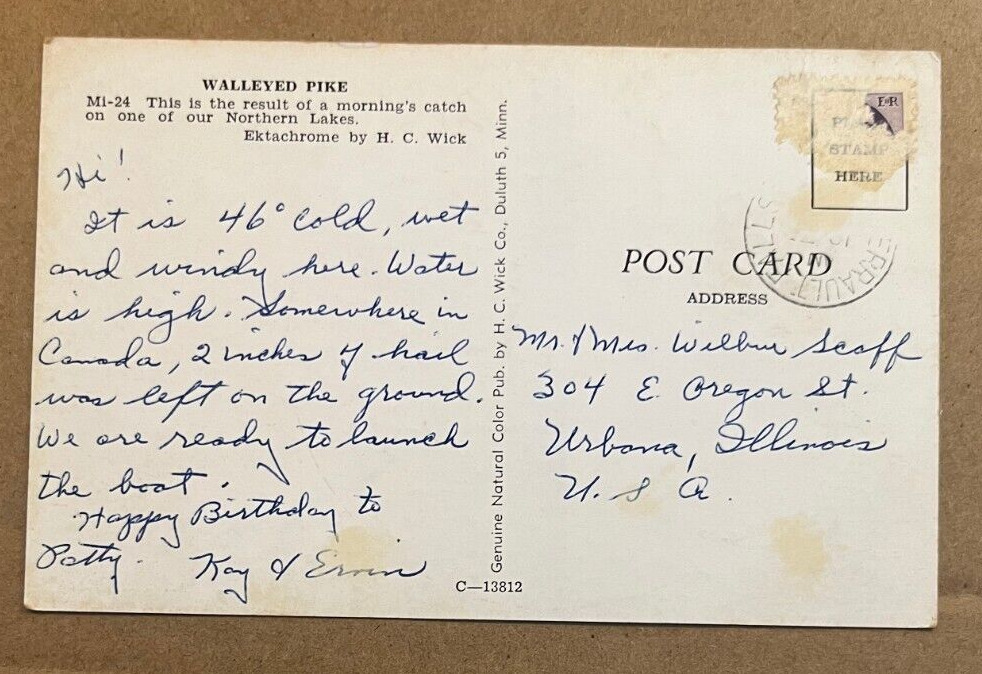 WALLEYED PIKE
MI-24 This is the result of a morning's catch
on one of our Northern Lakes.
Ektachrome by H. C. Wick
Hi!
It is 46° cold, wet
and windy here. Water
is high. Somewhere in
Canada, 2 inches of hail
was left on the ground.
We are ready to launch
the boat.
Happy Birthday to
Patty. Kay & Ervin
Genuine Natural Color Pub. by H. C. Wick Co., Duluth 5, Minn.
C—13812
E R
PLACE
STAMP
HERE
POST CARD
ADDRESS
Mr. & Mrs. Wilbur Scaff
304 E. Oregon St.
Urbana, Illinois
U. S. A.